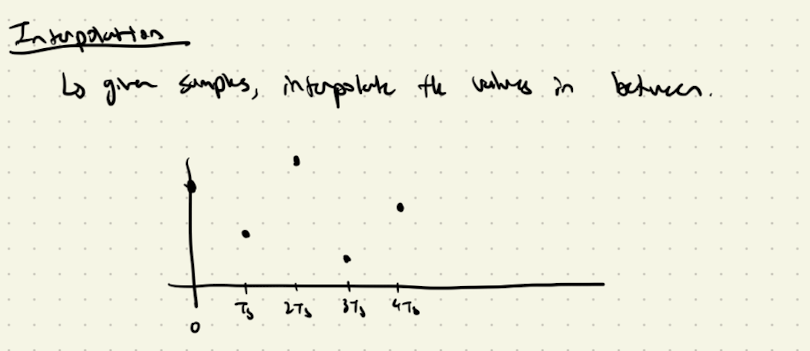 Interpolation
↳ given samples, interpolate the values in between.
Ts 2Ts 3Ts 4Ts
0